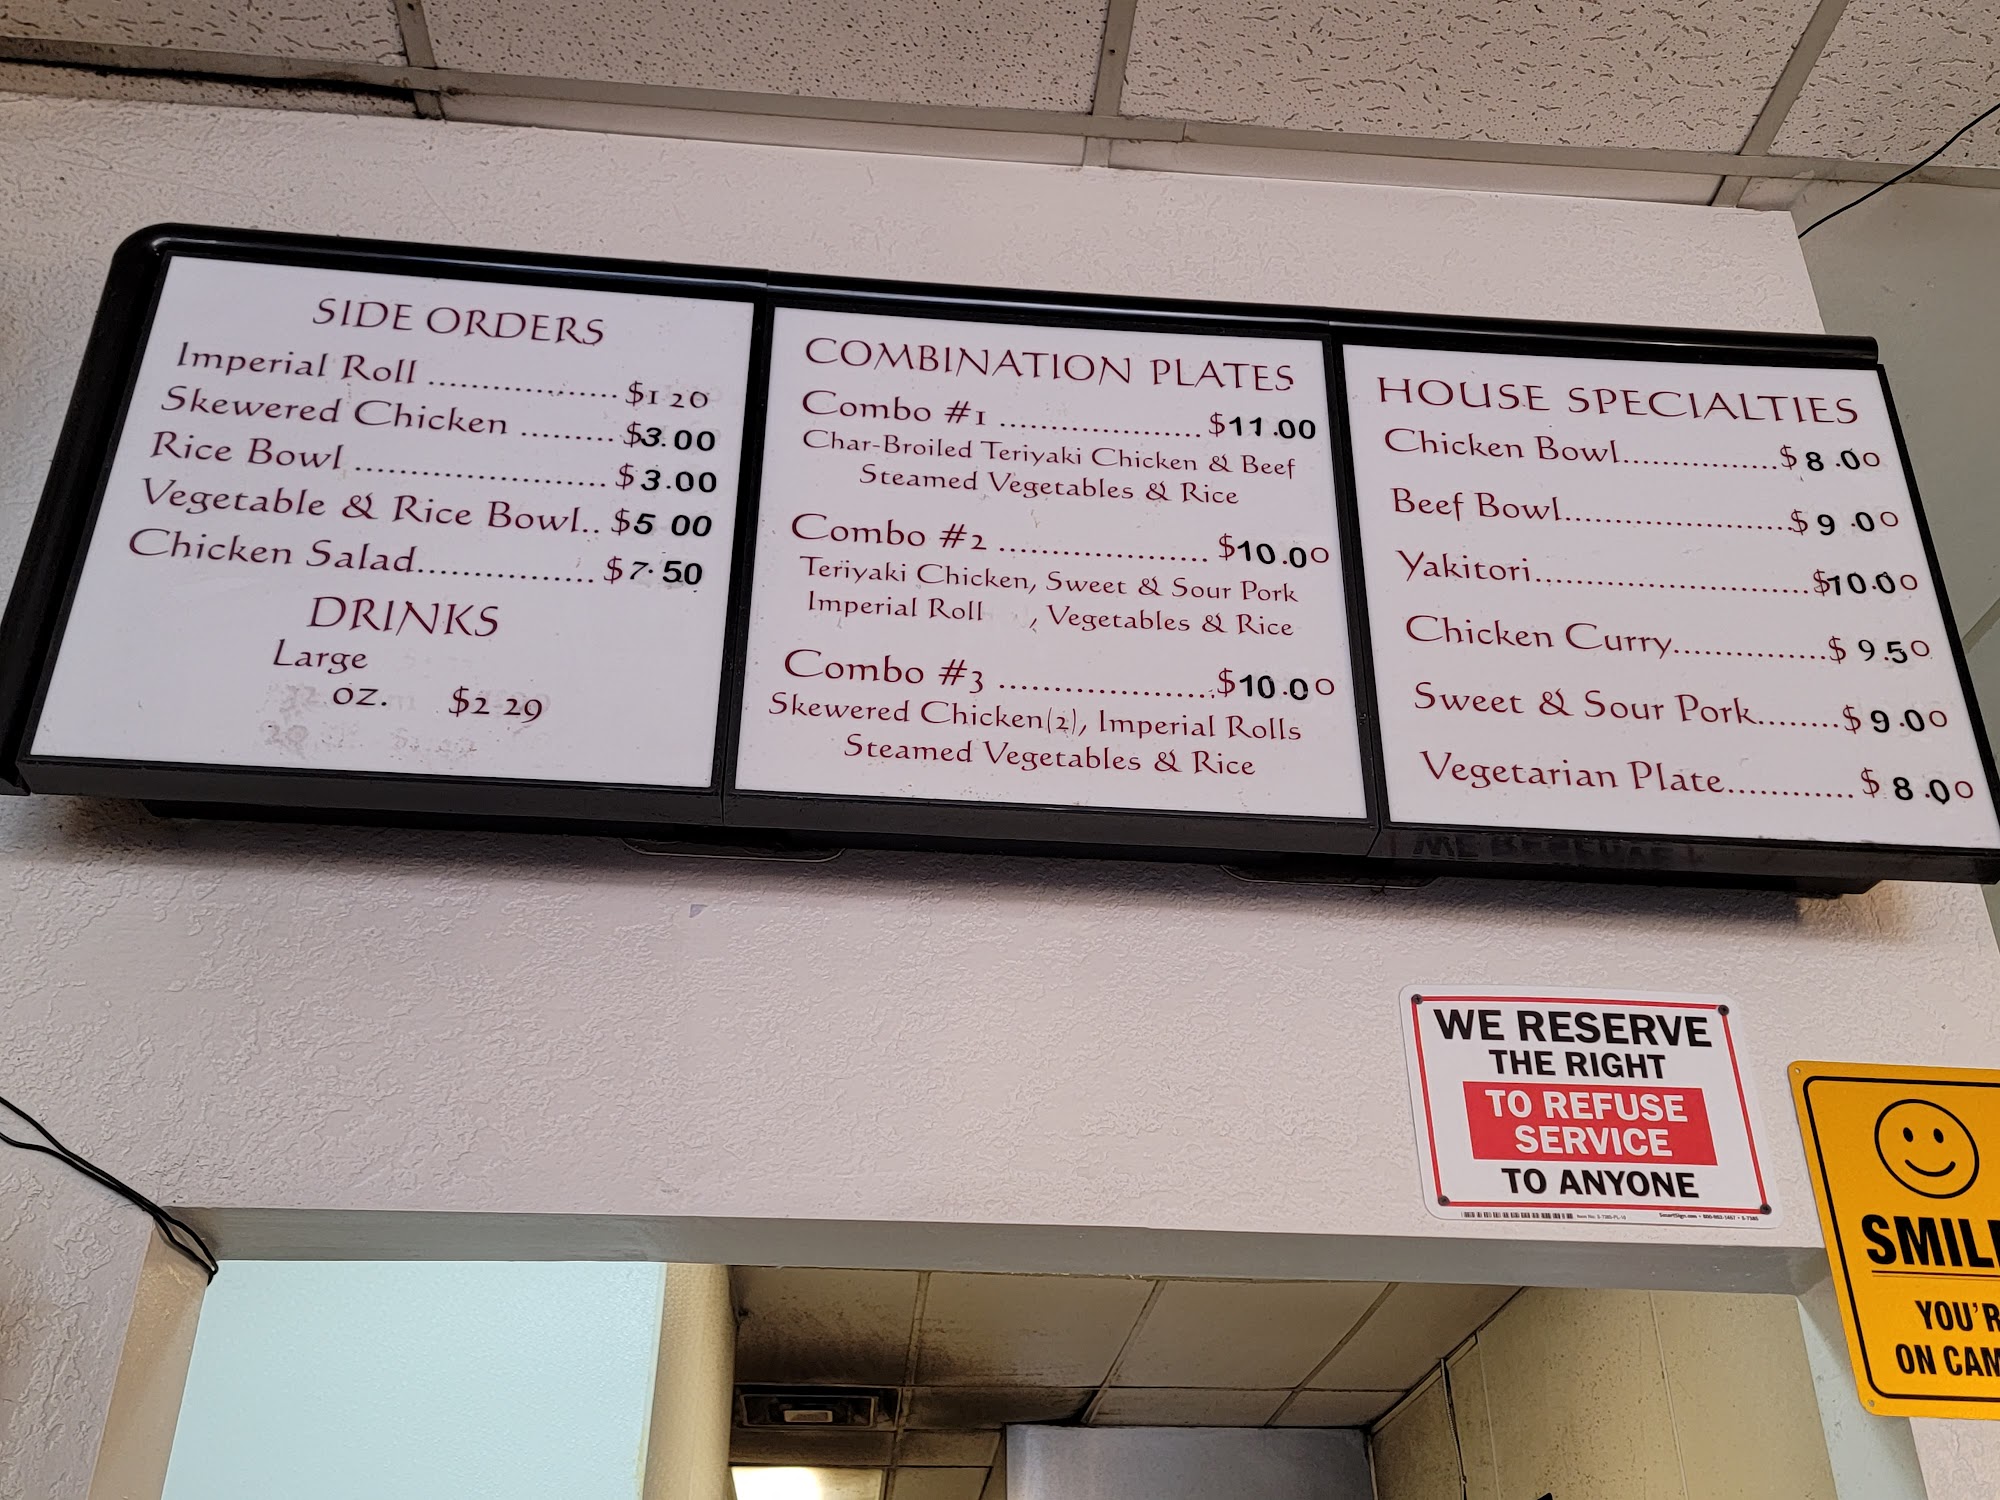 SIDE ORDERS
Imperial Roll ..................... $1 20
Skewered Chicken ......... $3.00
Rice Bowl ........................ $3.00
Vegetable & Rice Bowl.. $5 00
Chicken Salad................ $7.50
DRINKS
Large
oz. $2 29
COMBINATION PLATES
Combo #1 ................... $11.00
Char-Broiled Teriyaki Chicken & Beef
Steamed Vegetables & Rice
Combo #2 ................... $10.00
Teriyaki Chicken, Sweet & Sour Pork
Imperial Roll , Vegetables & Rice
Combo #3 ................... $10.00
Skewered Chicken(2), Imperial Rolls
Steamed Vegetables & Rice
HOUSE SPECIALTIES
Chicken Bowl................$ 8.00
Beef Bowl.......................$ 9.00
Yakitori...........................$10.00
Chicken Curry...............$ 9.50
Sweet & Sour Pork........$ 9.00
Vegetarian Plate............$ 8.00
WE RESERVE
THE RIGHT
TO REFUSE
SERVICE
TO ANYONE
SMIL
YOU'R
ON CAM